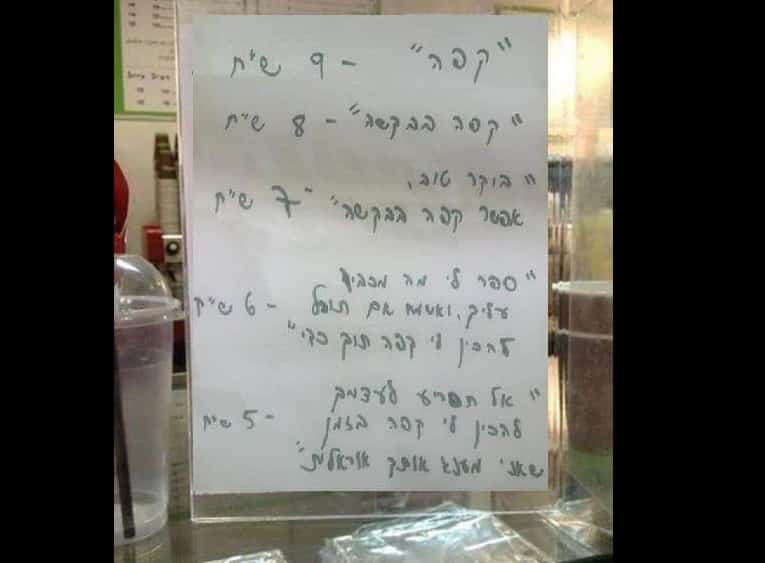 "קפה" - 9 ש"ח
"קפה בבקשה" - 8 ש"ח
"בוקר טוב,
אפשר קפה בבקשה" - 7 ש"ח
"ספר לי מה מכביד
עליך, ואשמח אם תוכל - 6 ש"ח
להכין לי קפה תוך כדי"
"אל תפריע לעצמך
להכין לי קפה בזמן - 5 ש"ח
שאני מענג אותך אוראלית"